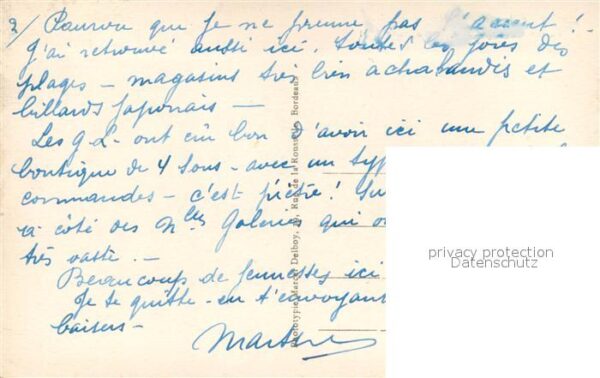 2/ Pourvu que je ne prenne pas l'accent !
J'ai retrouvé aussi ici, toutes les joies des
plages - magasins très bien achalandés et
billards japonais -
Les G L - ont cru bon d'avoir ici une petite
boutique de 4 sous - avec un
commandes - c'est piètre !
à côté des Nlles Galeries qui
très vaste . -
Beaucoup de jeunesses ici
Je te quitte - en t'envoyant
baisers -
Phototypie Marcel Delboy, Rue de la Rousselle, Bordeaux
privacy protection
Datenschutz